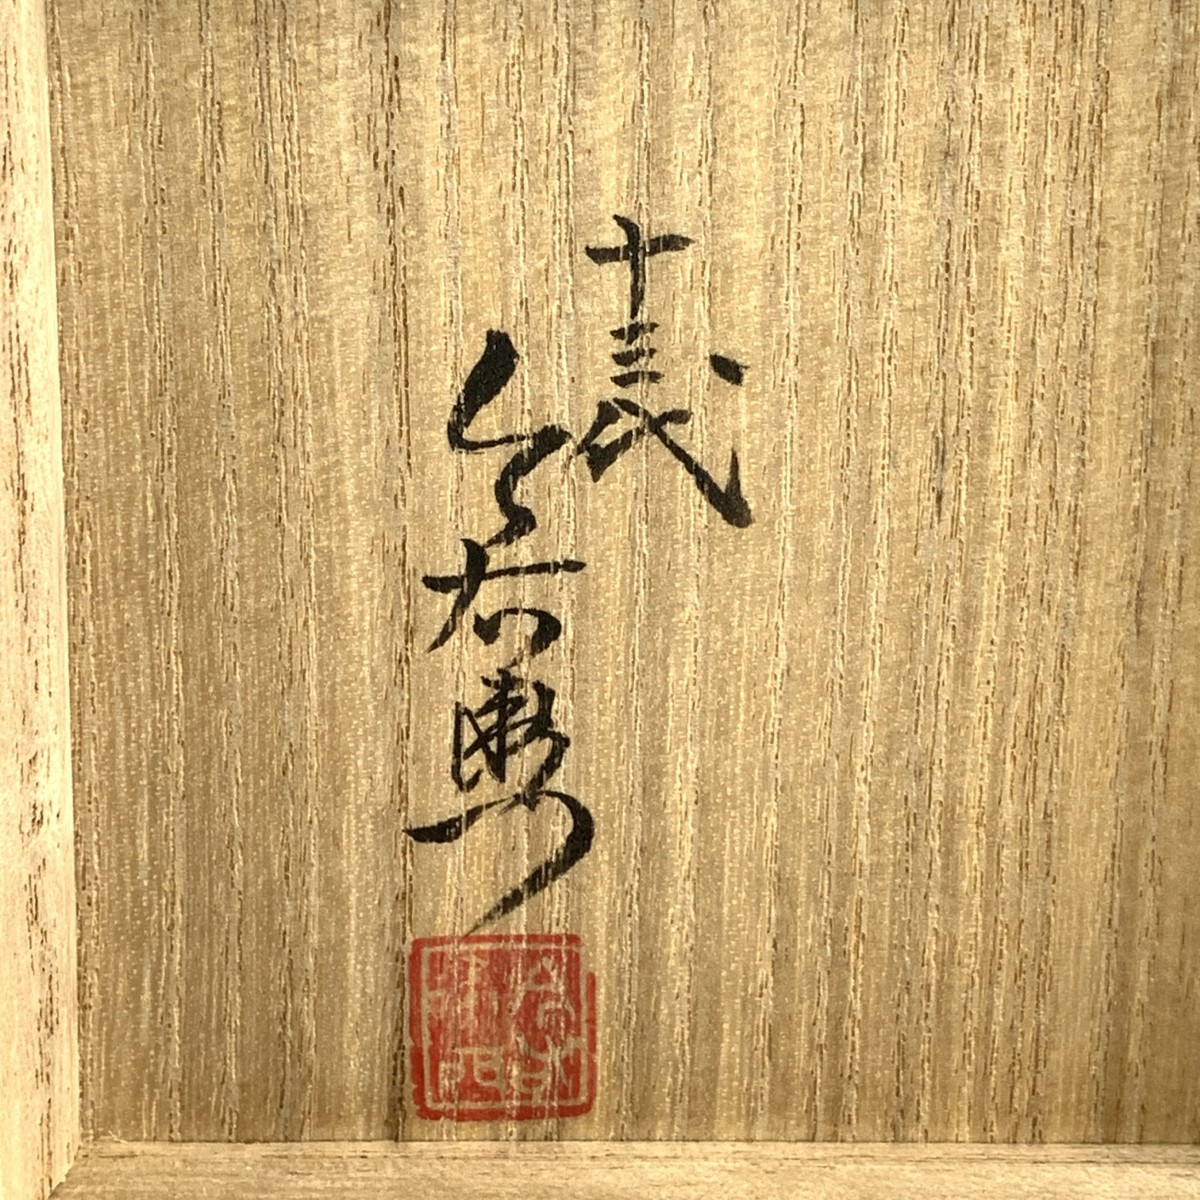 十三代
今右衛門